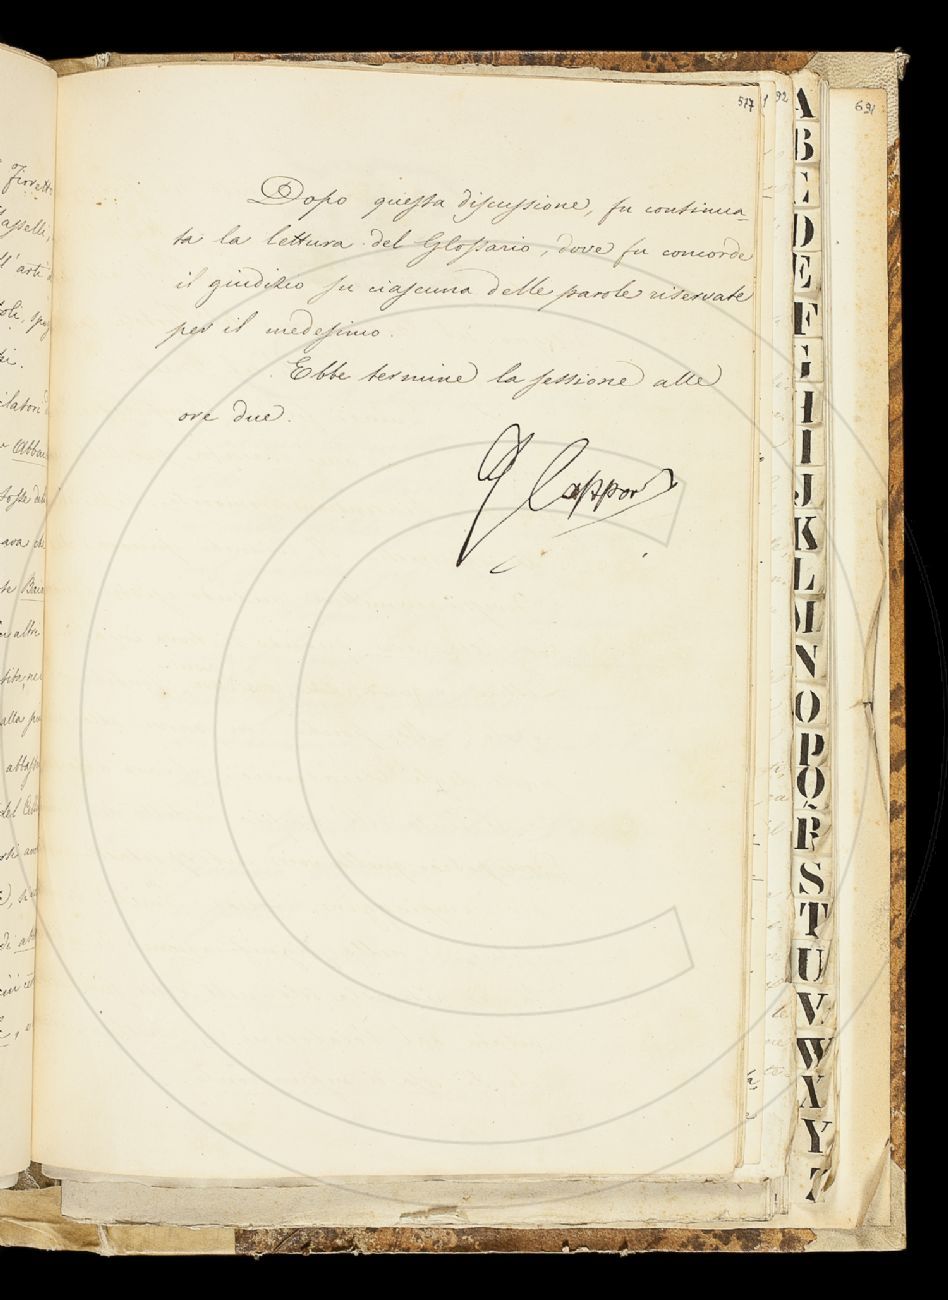 577
Dopo questa discussione, fu continua-
ta la lettura del Glossario, dove fu concorde
il giudizio su ciascuna delle parole riservate
per il medesimo.
Ebbe termine la sessione alle
ore due.
G Capponi
Fioretti
all' arti
Abba
altri
del
di
92
691
A
B
C
D
E
F
G
H
I
J
K
L
M
N
O
P
Q
R
S
T
U
V
W
X
Y
Z